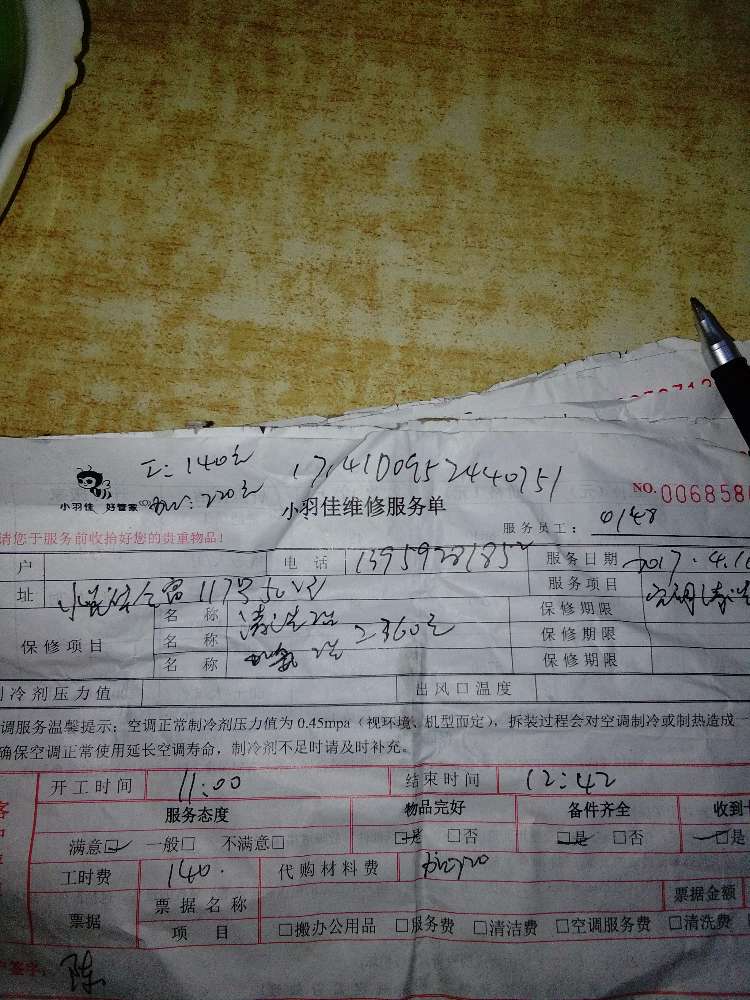 工:140元 1704100952440751
小羽佳 好管家 220元 小羽佳维修服务单 NO.0068580
请您于服务前收拾好您的贵重物品! 服务员工: 0148
户 电话 服务日期 2017.4.1
址 117号 服务项目 空调清洗
保修项目 名称 清洗 保修期限
名称 2 360元 保修期限
名称 加氟 保修期限
制冷剂压力值 出风口温度
调服务温馨提示:空调正常制冷剂压力值为0.45mpa(视环境、机型而定),拆装过程会对空调制冷或制热造成一
确保空调正常使用延长空调寿命,制冷剂不足时请及时补充。
开工时间 11:00 结束时间 12:42
服务态度 物品完好 备件齐全 收到
满意□ 一般□ 不满意□ □是 □否 □是 □否 □是
工时费 140. 代购材料费
票据 票据名称 票据金额
项目 □搬办公用品 □服务费 □清洁费 □空调服务费 □清洗费
签字: 陈